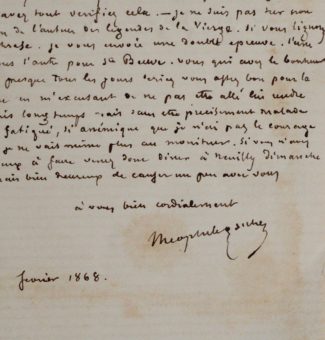 avez tout verifiez cela. — je ne suis pas très sûr
de l'auteur des légendes de la Vierge. si vous l'ignorez
je vous envoie une double epreuve. l'une
l'autre pour Ste Beuve. vous qui avez le bonheur
presque tous les jours soyez assez bon pour le
en m'excusant de ne pas être allé lui rendre
longtemps. sans être precisement malade
fatigué, si anémique que je n'ai pas le courage
je ne vais meme plus au moniteur. si vous n'avez
à faire venez donc diner à Neuilly dimanche
bien heureux de causer un peu avec vous
à vous bien cordialement
Theophile Gautier
fevrier 1868.